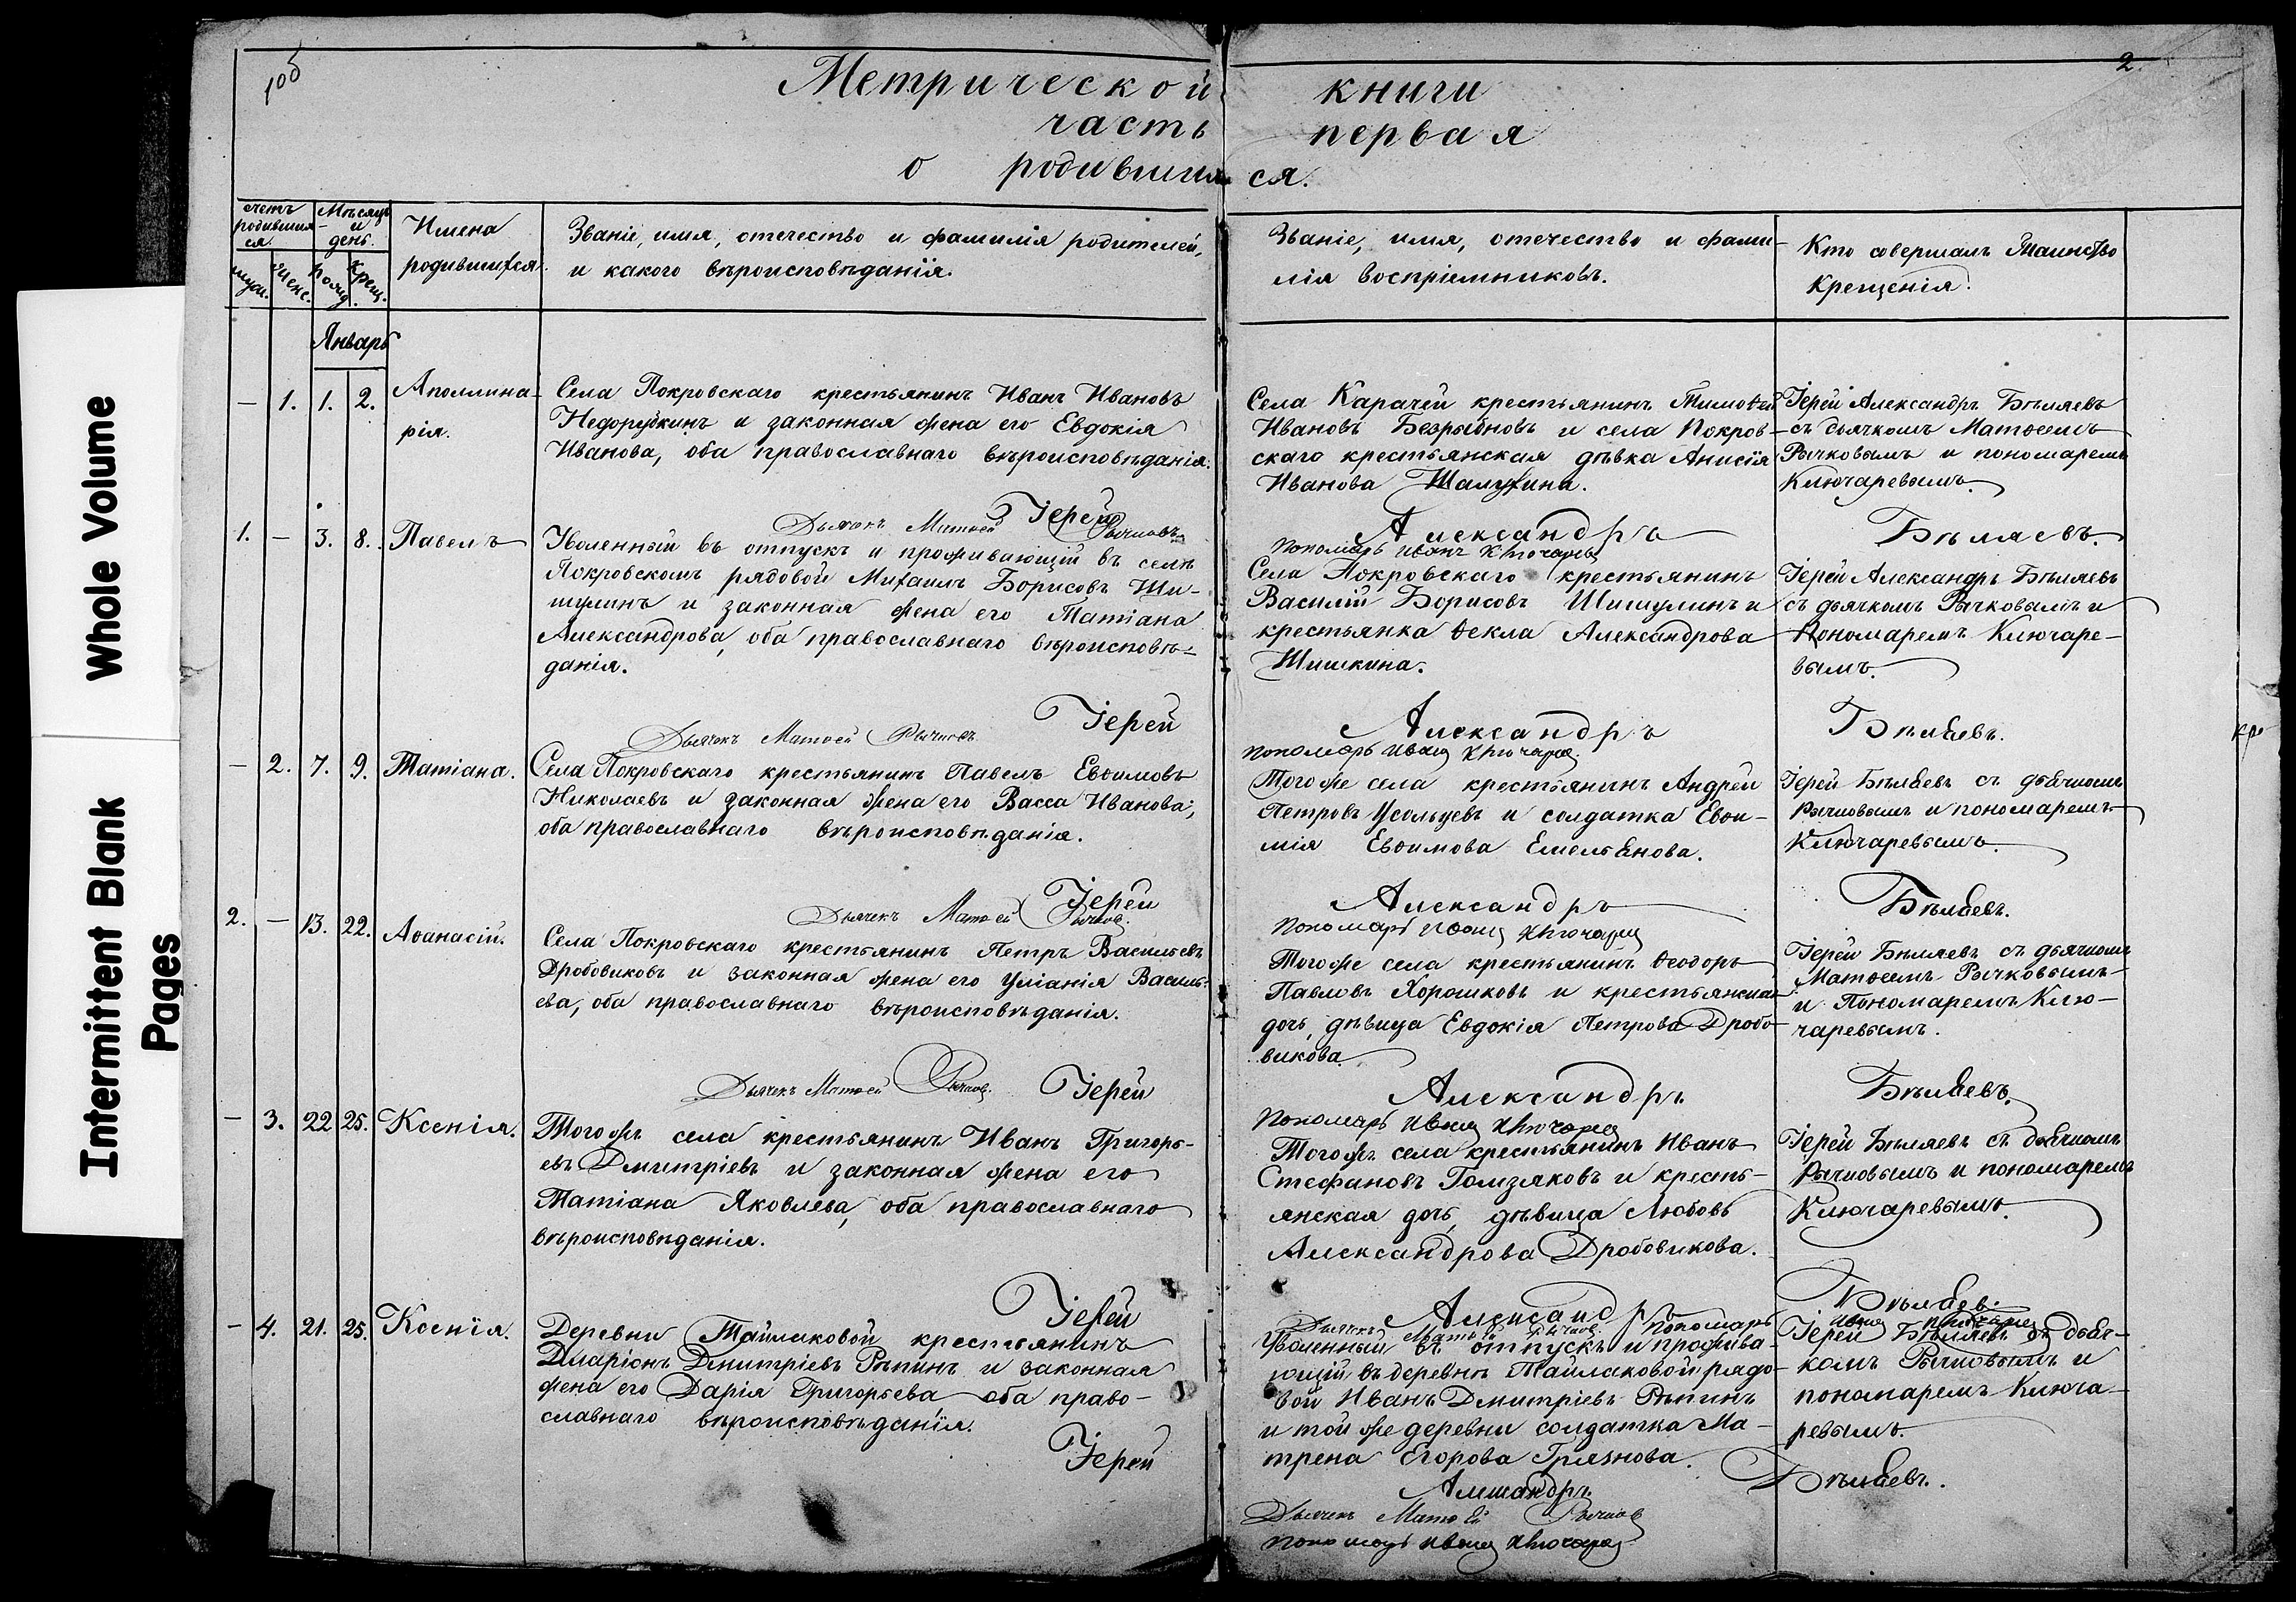 Intermittent Blank Whole Volume
Pages
1об
2
Метрической книги
часть первая
о родившихся.
счетъ родившихся.
муж.
женс.
Мѣсяцъ и день.
рожд.
крещ.
Имена
родившихся.
Званіе, имя, отечество и фамилія родителей,
и какого вѣроисповѣданія.
Званіе, имя, отечество и фами-
лія воспріемниковъ.
Кто совершалъ Таинство
Крещенія.
Январь
— 1. 1. 2.
Аполлина-
рія.
Села Покровскаго крестьянинъ Иванъ Ивановъ
Недорубкинъ и законная жена его Евдокія
Иванова, оба православнаго вѣроисповѣданія.
Села Карачей крестьянинъ Тимоѳей
Ивановъ Безрыбновъ и села Покров-
скаго крестьянская дѣвка Анисія
Иванова Шалухина.
Іерей Александръ Бѣляевъ
съ дьячкомъ Матѳеемъ
Рычковымъ и пономаремъ
Ключаревымъ.
Іерей Александръ Бѣляевъ.
Дьячекъ Матѳей Рычковъ
Пономарь Иванъ Ключаревъ
1. — 3. 8.
Павелъ
Уволенный въ отпускъ и проживающій въ селѣ
Покровскомъ рядовой Михаилъ Борисовъ Ши-
шулинъ и законная жена его Татіана
Александрова, оба православнаго вѣроисповѣ-
данія.
Села Покровскаго крестьянинъ
Василій Борисовъ Шишулинъ и
крестьянка Ѳекла Александрова
Шишкина.
Іерей Александръ Бѣляевъ
съ дьячкомъ Рычковымъ и
Пономаремъ Ключаре-
вымъ.
Іерей Александръ Бѣляевъ.
Дьячекъ Матѳей Рычковъ
Пономарь Иванъ Ключаревъ
— 2. 7. 9.
Татіана.
Села Покровскаго крестьянинъ Павелъ Евѳимовъ
Николаевъ и законная жена его Васса Иванова,
оба православнаго вѣроисповѣданія.
Тогоже села крестьянинъ Андрей
Петровъ Усольцевъ и солдатка Евѳи-
мія Евѳимова Емельянова.
Іерей Бѣляевъ съ дьячкомъ
Рычковымъ и пономаремъ
Ключаревымъ.
Іерей Александръ Бѣляевъ.
Дьячекъ Матѳей Рычковъ
Пономарь Иванъ Ключаревъ
2. — 13. 22.
Аѳанасій.
Села Покровскаго крестьянинъ Петръ Васильевъ
Дробовиковъ и законная жена его Уліанія Василь-
ева, оба православнаго вѣроисповѣданія.
Тогоже села крестьянинъ Ѳеодоръ
Павловъ Хорошковъ и крестьянская
дочь, дѣвица Евдокія Петрова Дробо-
викова.
Іерей Бѣляевъ съ дьячкомъ
Матѳеемъ Рычковымъ
и Пономаремъ Клю-
чаревымъ.
Іерей Александръ Бѣляевъ.
Дьячекъ Матѳей Рычковъ
Пономарь Иванъ Ключаревъ
— 3. 22 25.
Ксенія.
Тогожъ села крестьянинъ Иванъ Григорь-
евъ Дмитріевъ и законная жена его
Татіана Яковлева, оба православнаго
вѣроисповѣданія.
Тогожъ села крестьянинъ Иванъ
Стефановъ Голизяковъ и кресть-
янская дочь, дѣвица Любовь
Александрова Дробовикова.
Іерей Бѣляевъ съ дьячкомъ
Рычковымъ и пономаремъ
Ключаревымъ.
Іерей Александръ Бѣляевъ.
Дьячекъ Матѳей Рычковъ Пономарь Иванъ Ключаревъ
— 4. 21. 25.
Ксенія.
Деревни Таймаковой крестьянинъ
Иларіонъ Дмитріевъ Рѣпинъ и законная
жена его Дарія Григорьева, оба право-
славнаго вѣроисповѣданія.
Уволенный въ отпускъ и прожива-
ющій въ деревнѣ Таймаковой рядо-
вой Иванъ Дмитріевъ Рѣпинъ
и той же деревни солдатка Ма-
трена Егорова Грязнова.
Іерей Бѣляевъ съ дьяч-
комъ Рычковымъ и
пономаремъ Ключа-
ревымъ.
Іерей Александръ Бѣляевъ.
Дьячекъ Матѳей Рычковъ
Пономарь Иванъ Ключаревъ